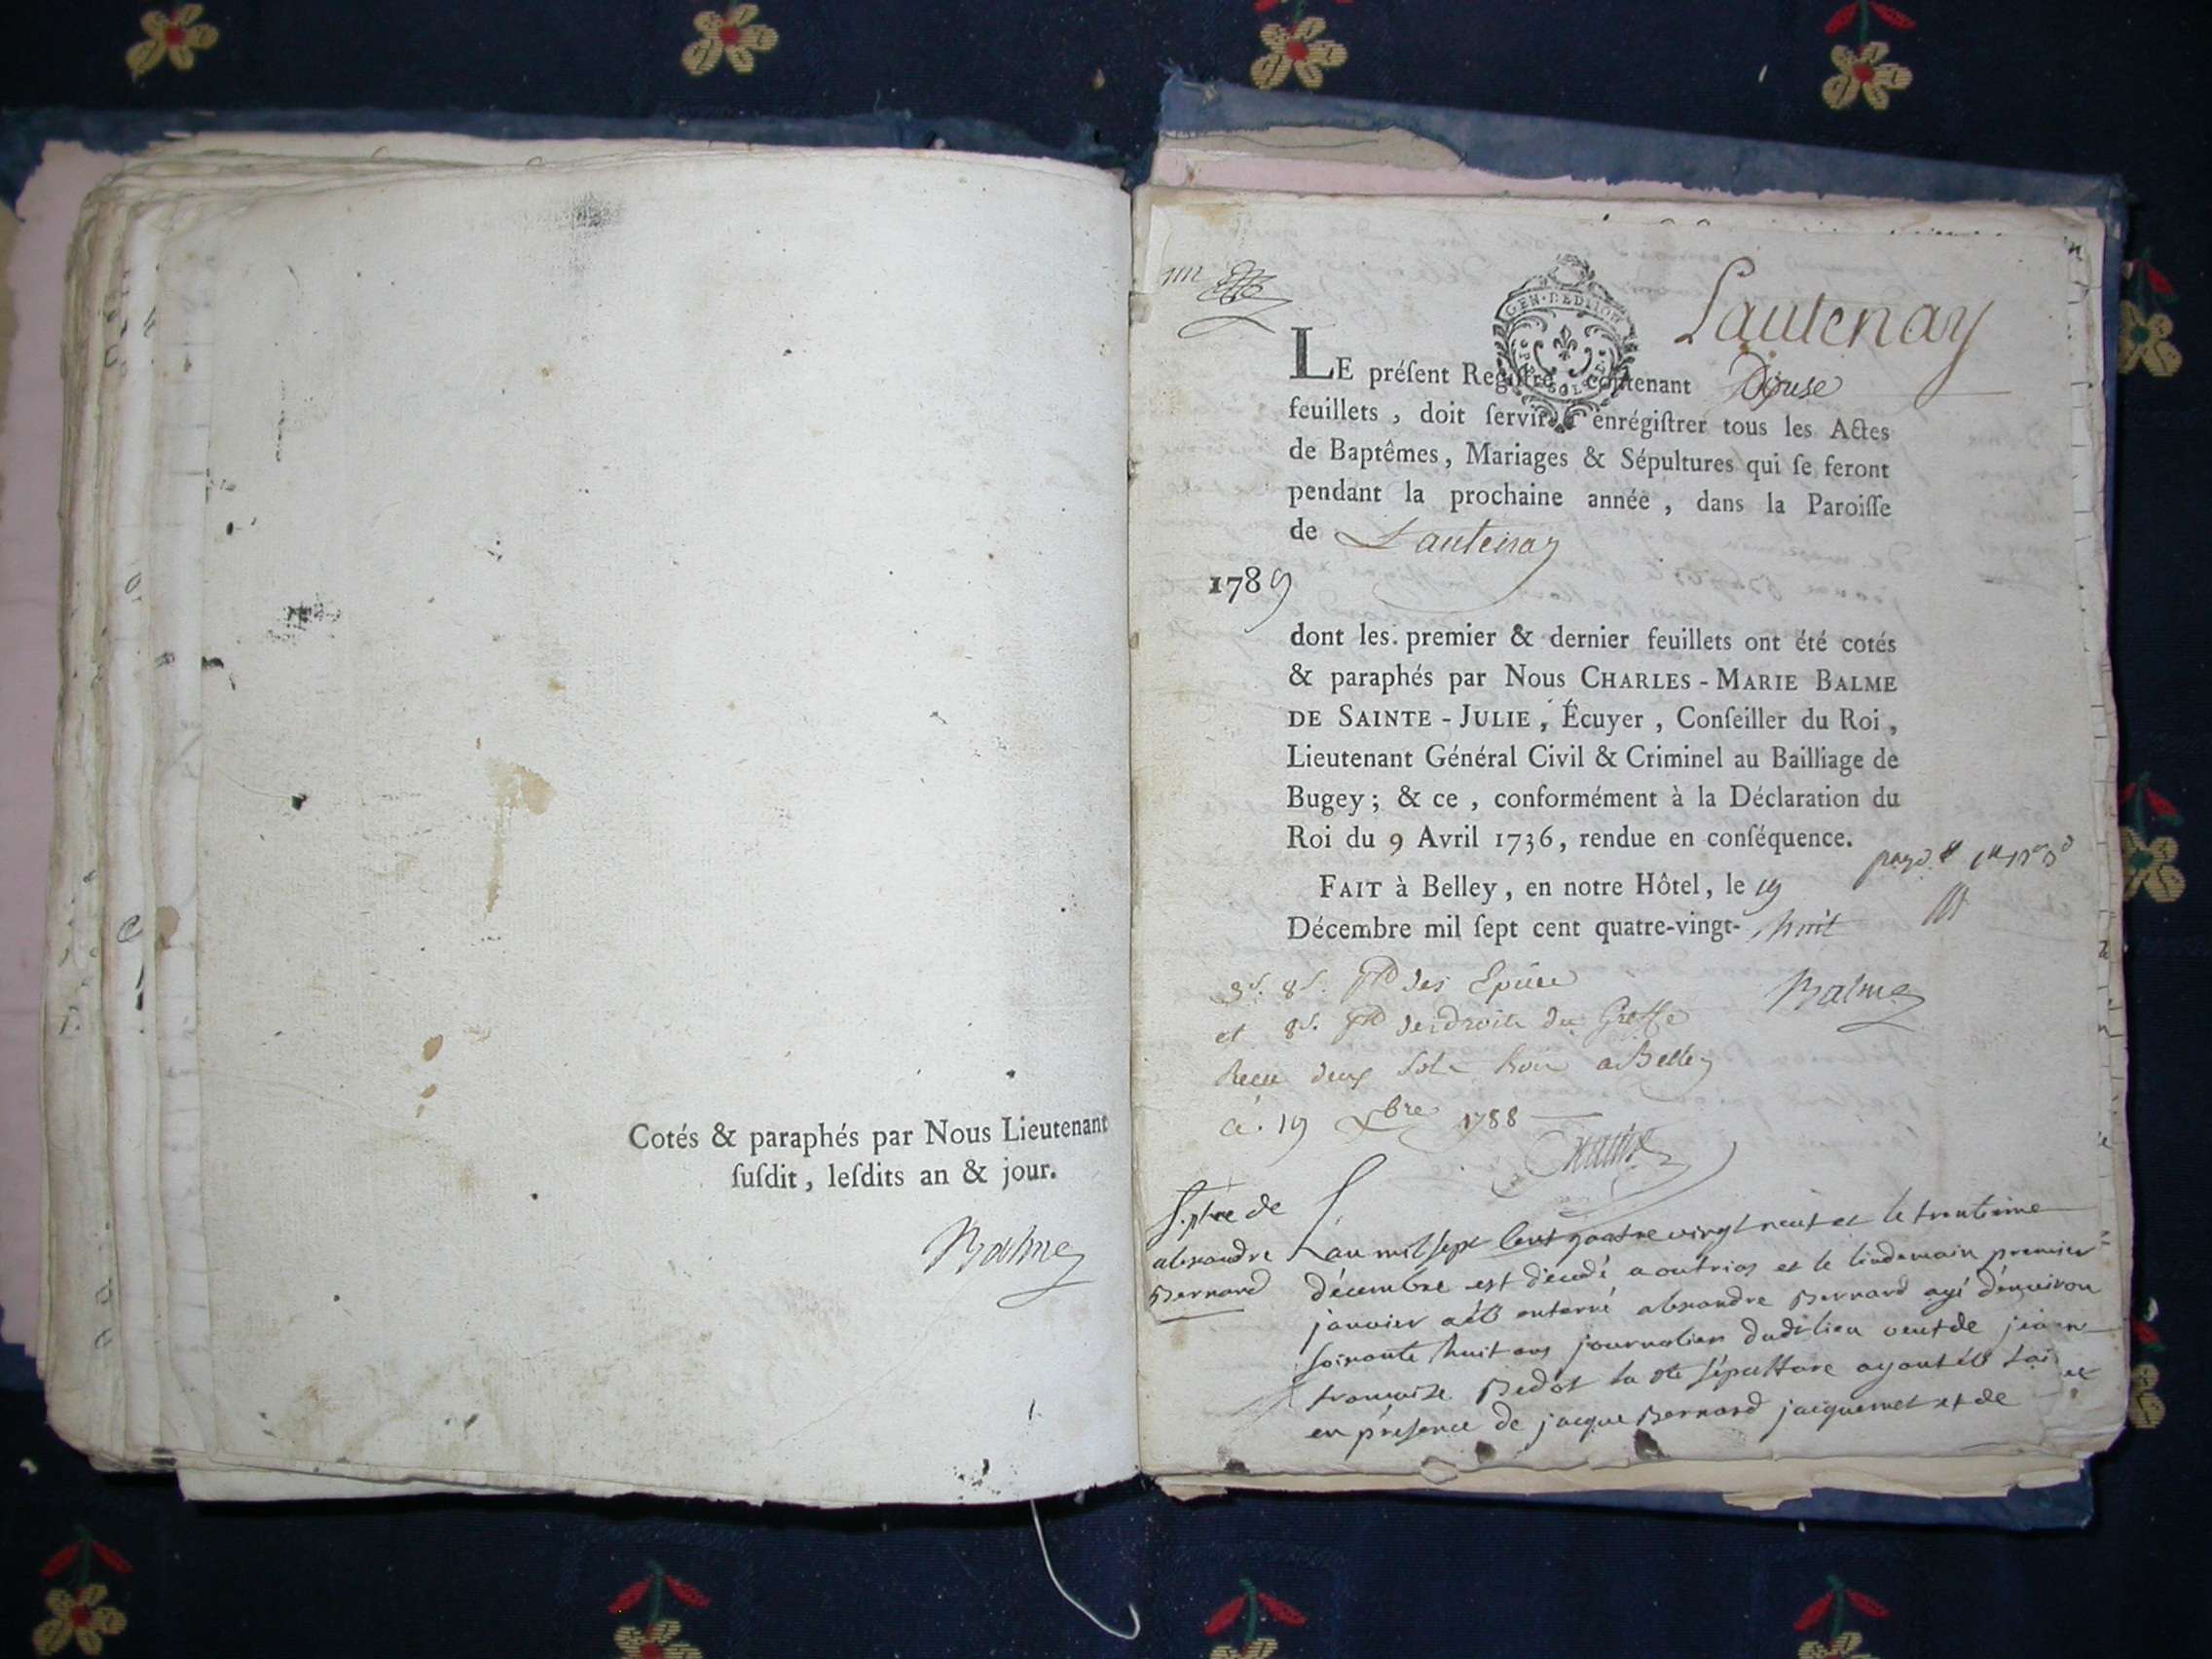 Cotés & paraphés par Nous Lieutenant
ſuſdit, leſdits an & jour.
Balme
Lautenay
GEN. DE DIJON
LE préſent Regiſtre contenant Douse
feuillets, doit ſervir à enrégiſtrer tous les Actes
de Baptêmes, Mariages & Sépultures qui ſe feront
pendant la prochaine année, dans la Paroiſſe
de Lautenay
1789
dont les premier & dernier feuillets ont été cotés
& paraphés par Nous CHARLES-MARIE BALME
DE SAINTE-JULIE, Écuyer, Conſeiller du Roi,
Lieutenant Général Civil & Criminel au Bailliage de
Bugey; & ce, conformément à la Déclaration du
Roi du 9 Avril 1736, rendue en conſéquence.
FAIT à Belley, en notre Hôtel, le 19
Décembre mil ſept cent quatre-vingt-huit
Balme
8s. des Epices
et 8s. des droits du Greffe
Reçu deux sols a Belley
19 Xbre 1788
Septure de
alexandre
Bernard
L'an mil sept cent quatre vingt neuf et le trentieme
décembre est décédé a outriaz et le lendemain premier
janvier a été enterré alexandre Bernard agé d'environ
soixante huit ans journalier dudit lieu veuf de jean
francoise Bedot la dte sépulture ayant été fai
en présence de jacque Bernard jacquemet et de